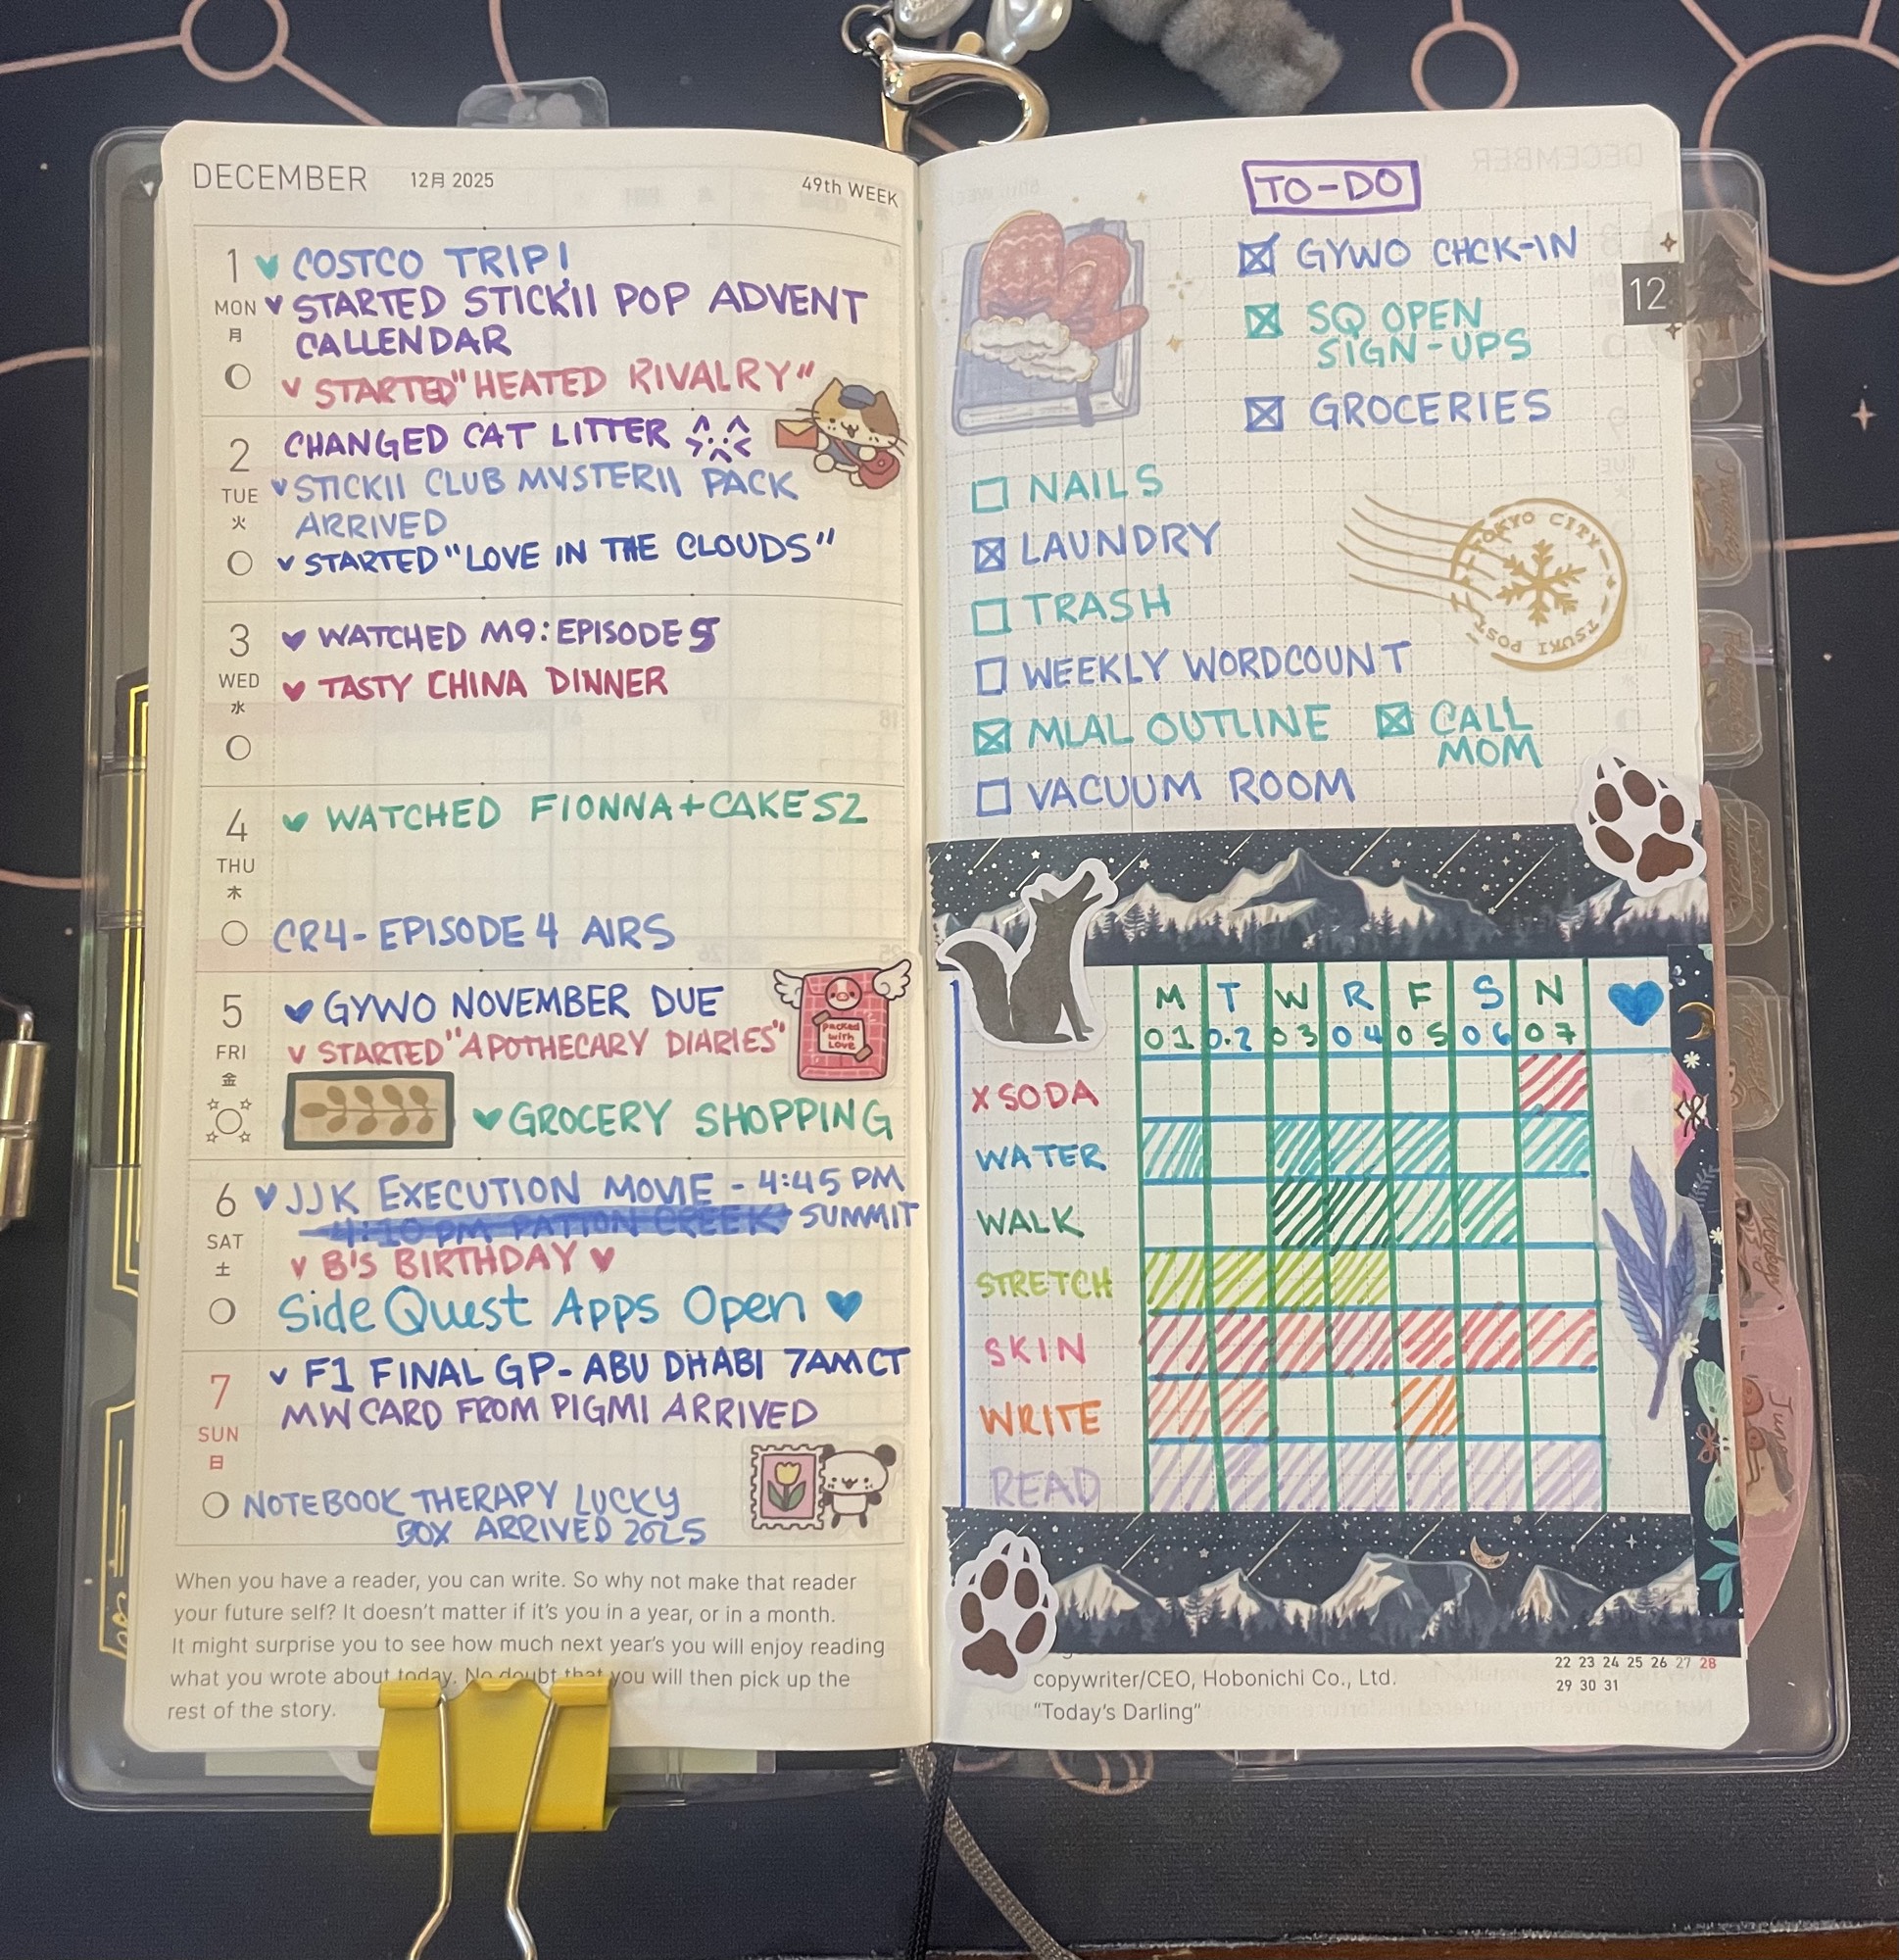 DECEMBER 12月 2025 49th WEEK
1 COSTCO TRIP!
MON STARTED STICKII POP ADVENT
月 CALLENDAR
STARTED "HEATED RIVALRY"
2 CHANGED CAT LITTER
TUE STICKII CLUB MYSTERII PACK
火 ARRIVED
STARTED "LOVE IN THE CLOUDS"
3 WATCHED M9: EPISODE 5
WED TASTY CHINA DINNER
水
4 WATCHED FIONNA + CAKE S2
THU
木
CR4 - EPISODE 4 AIRS
5 GYWO NOVEMBER DUE
FRI STARTED "APOTHECARY DIARIES"
金
GROCERY SHOPPING
packed
with
Love
6 JJK EXECUTION MOVIE - 4:45 PM
4:10 PM PATTON CREEK SUMMIT
SAT
土 B'S BIRTHDAY
Side Quest Apps Open
7 F1 FINAL GP - ABU DHABI 7AM CT
MW CARD FROM PIGMI ARRIVED
SUN
日
NOTEBOOK THERAPY LUCKY
BOX ARRIVED 2025
When you have a reader, you can write. So why not make that reader
your future self? It doesn't matter if it's you in a year, or in a month.
It might surprise you to see how much next year's you will enjoy reading
what you wrote about today. No doubt that you will then pick up the
rest of the story.
TO-DO
GYWO CHCK-IN
12
SQ OPEN
SIGN-UPS
GROCERIES
NAILS
LAUNDRY
TRASH
WEEKLY WORDCOUNT
MLAL OUTLINE
CALL
MOM
VACUUM ROOM
TOKYO CITY
TSUKI POST
M T W R F S N
01 0.2 03 04 05 06 07
X SODA
WATER
WALK
STRETCH
SKIN
WRITE
READ
copywriter/CEO, Hobonichi Co., Ltd.
"Today's Darling"
22 23 24 25 26 27 28
29 30 31
June